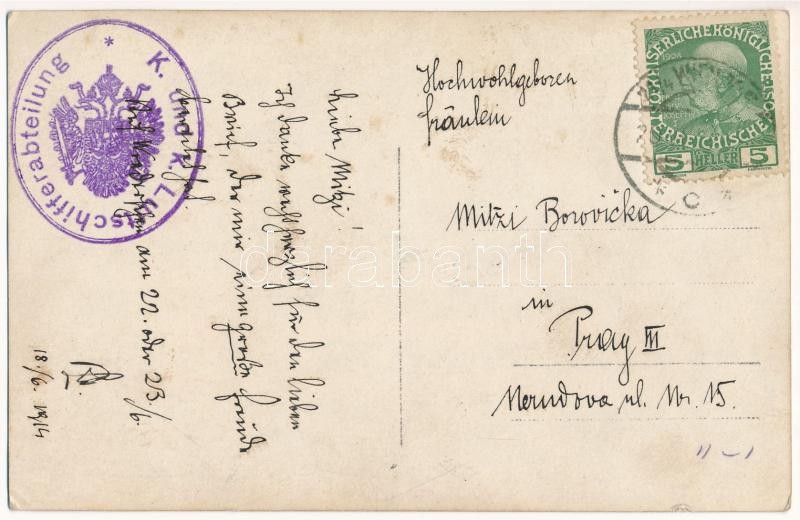 K. und K. Luftschifferabteilung *
Liebe Mitzi!
Ich danke recht herzlich für den lieben
Brief, der mir eine große Freude
Auf Wiedersehen am 22. oder 23./6.
18./6. 1914
Hochwohlgeboren
Fräulein
Mitzi Borovička
in
Prag III
Nerudova ul. Nr. 15.
KAISERLICHE KÖNIGLICHE
ÖSTERREICHISCHE
1908
5 HELLER 5
darabanth